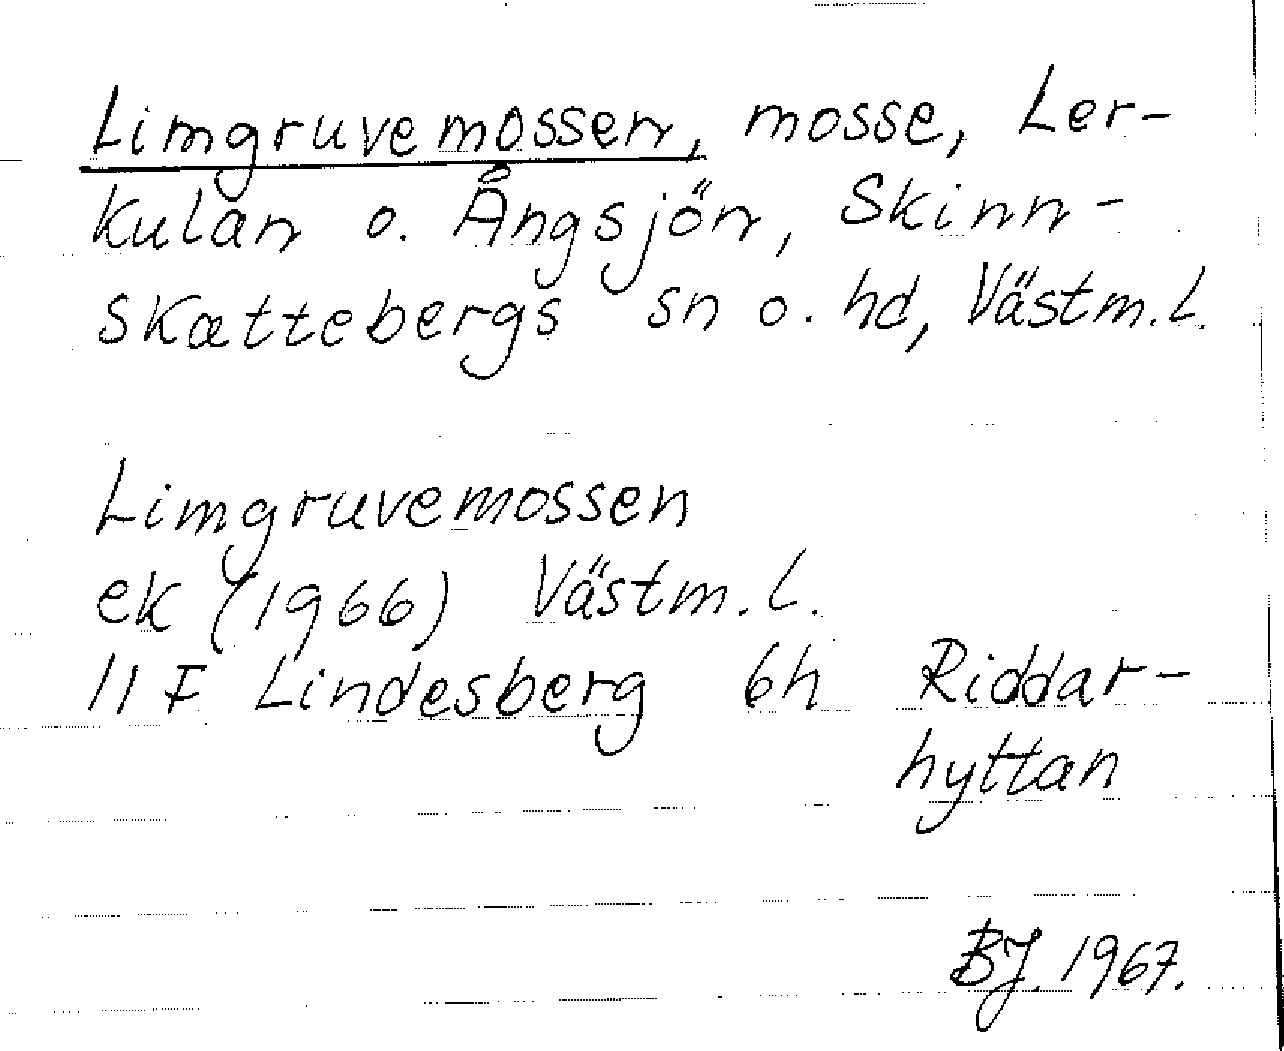 Limgruvemossen, mosse, Ler-
kulan o. Ångsjön, Skinn-
skattebergs sn o. hd, Västm.l.
Limgruvemossen
ek (1966) Västm.l.
11 F Lindesberg 6h Riddar-
hyttan
BJ. 1967.